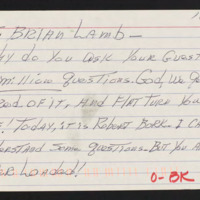 BRIAN LAMB—
HY DO YOU ASK YOUR GUEST
MILLION QUESTIONS. GOD, WE G
OF IT, AND FLAT TURE YOU
! TODAY, IT IS ROBERT BORK. I C
RSTAND SOME QUESTIONS. BUT YOU A
R LOADED!!
O-BK